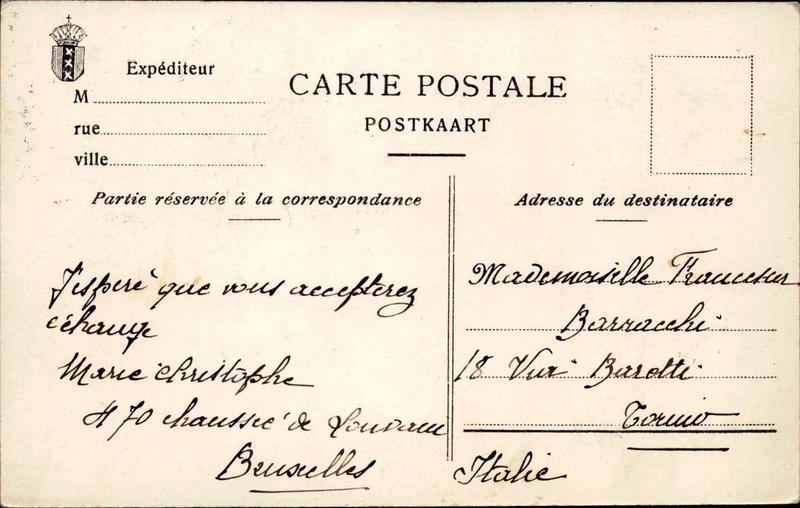 Expéditeur
M
rue
ville
CARTE POSTALE
POSTKAART
Partie réservée à la correspondance
J'espère que vous accepterez
échange
Marie Christophe
470 chaussée de Louvain
Bruxelles
Adresse du destinataire
Mademoiselle
Barracchi
18 Via Baretti
Torino
Italie